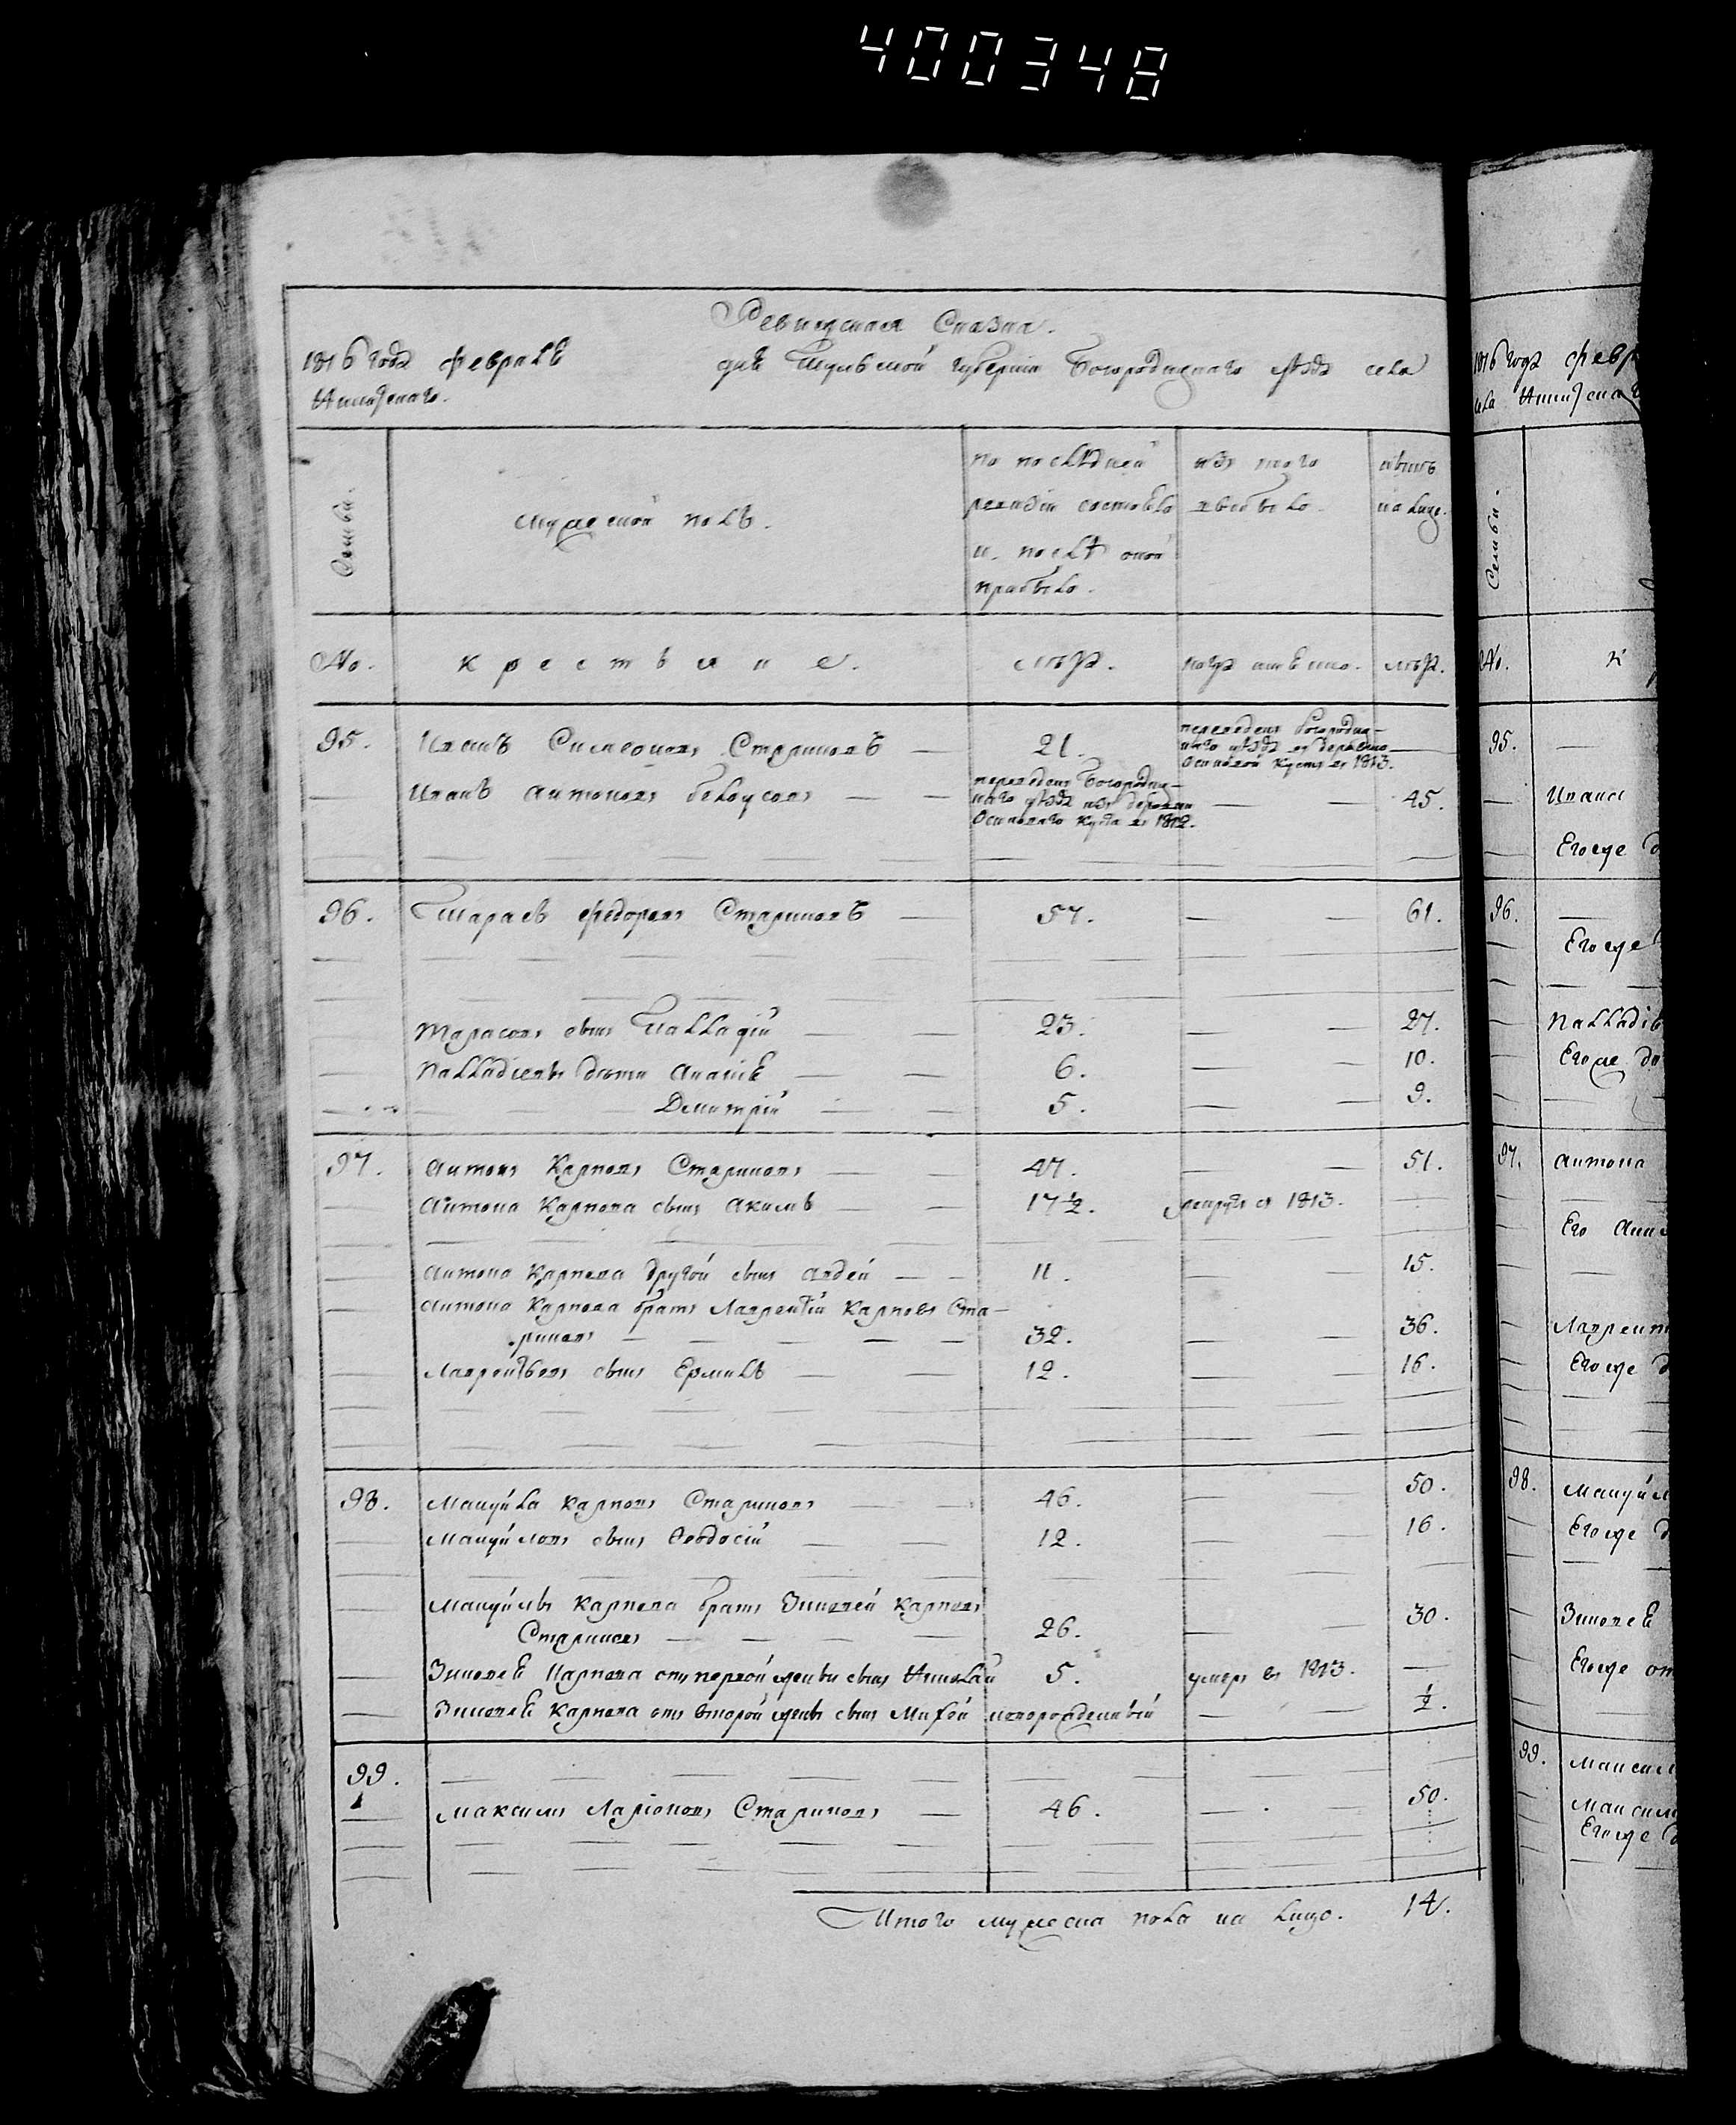 400348
Ревижская Сказка.
1816 года февраля дня Тульской губернии Богородицкаго уѣзда села
Никитскаго.
Семьи.
мужеской полъ.
по послѣдней
ревизіи состояло
и послѣ оной
прибыло.
изъ того
выбыло.
нынѣ
на лицо.
No.
крестьяне.
лѣта.
когда именно.
лѣта.
95. Иванъ Симеоновъ Стариковъ — 21. переведенъ богородиц-
каго уѣзда въ деревню
Осиновой кустъ въ 1813. —
Иванъ Антоновъ белоусовъ — — переведенъ Богородиц-
каго уѣзда изъ деревни
Осиноваго куста въ 1812. — — 45.
96. Тарасъ Федоровъ Стариковъ — 57. — — 61.
Тарасовъ сынъ Палладій — — 23. — — 27.
Палладіевы дѣти Ананіе — — 6. — — 10.
Димитрій — — 5. — — 9.
97. Антонъ Карповъ Стариковъ — — 47. — — 51.
Антона Карпова сынъ Акимъ — — 17½. рекрутъ въ 1813. —
Антона Карпова другой сынъ Авдей — — 11. — — 15.
Антона Карпова братъ Лаврентій Карповъ Ста-
риковъ — — — — — 32. — — 36.
Лаврентьевъ сынъ Ермилъ — — 12. — — 16.
98. Мануйла Карповъ Стариковъ — — 46. — — 50.
Мануйловъ сынъ Ѳеодосій — — 12. — — 16.
Мануйлы Карпова братъ Зиновей Карповъ
Стариковъ — — — — 26. — — 30.
Зиновея Карпова отъ первой жены сынъ Николай 5. умеръ въ 1813. —
Зиновея Карпова отъ второй жены сынъ Михей новорожденный — — ½.
99.
1
Максимъ Ларіоновъ Стариковъ — 46. — — 50.
Итого мужеска пола на лицо. 14.
1816 года февр
села Никитскаг
Семьи.
No. к
95. —
Ивана
Егоже д
96. —
Егоже
Палладіе
Егоже до
97. Антона
Его
Лаврент
Егоже д
98. Мануйл
Егоже д
Зиновея
Егоже от
99. Максим
Максим
Егоже д